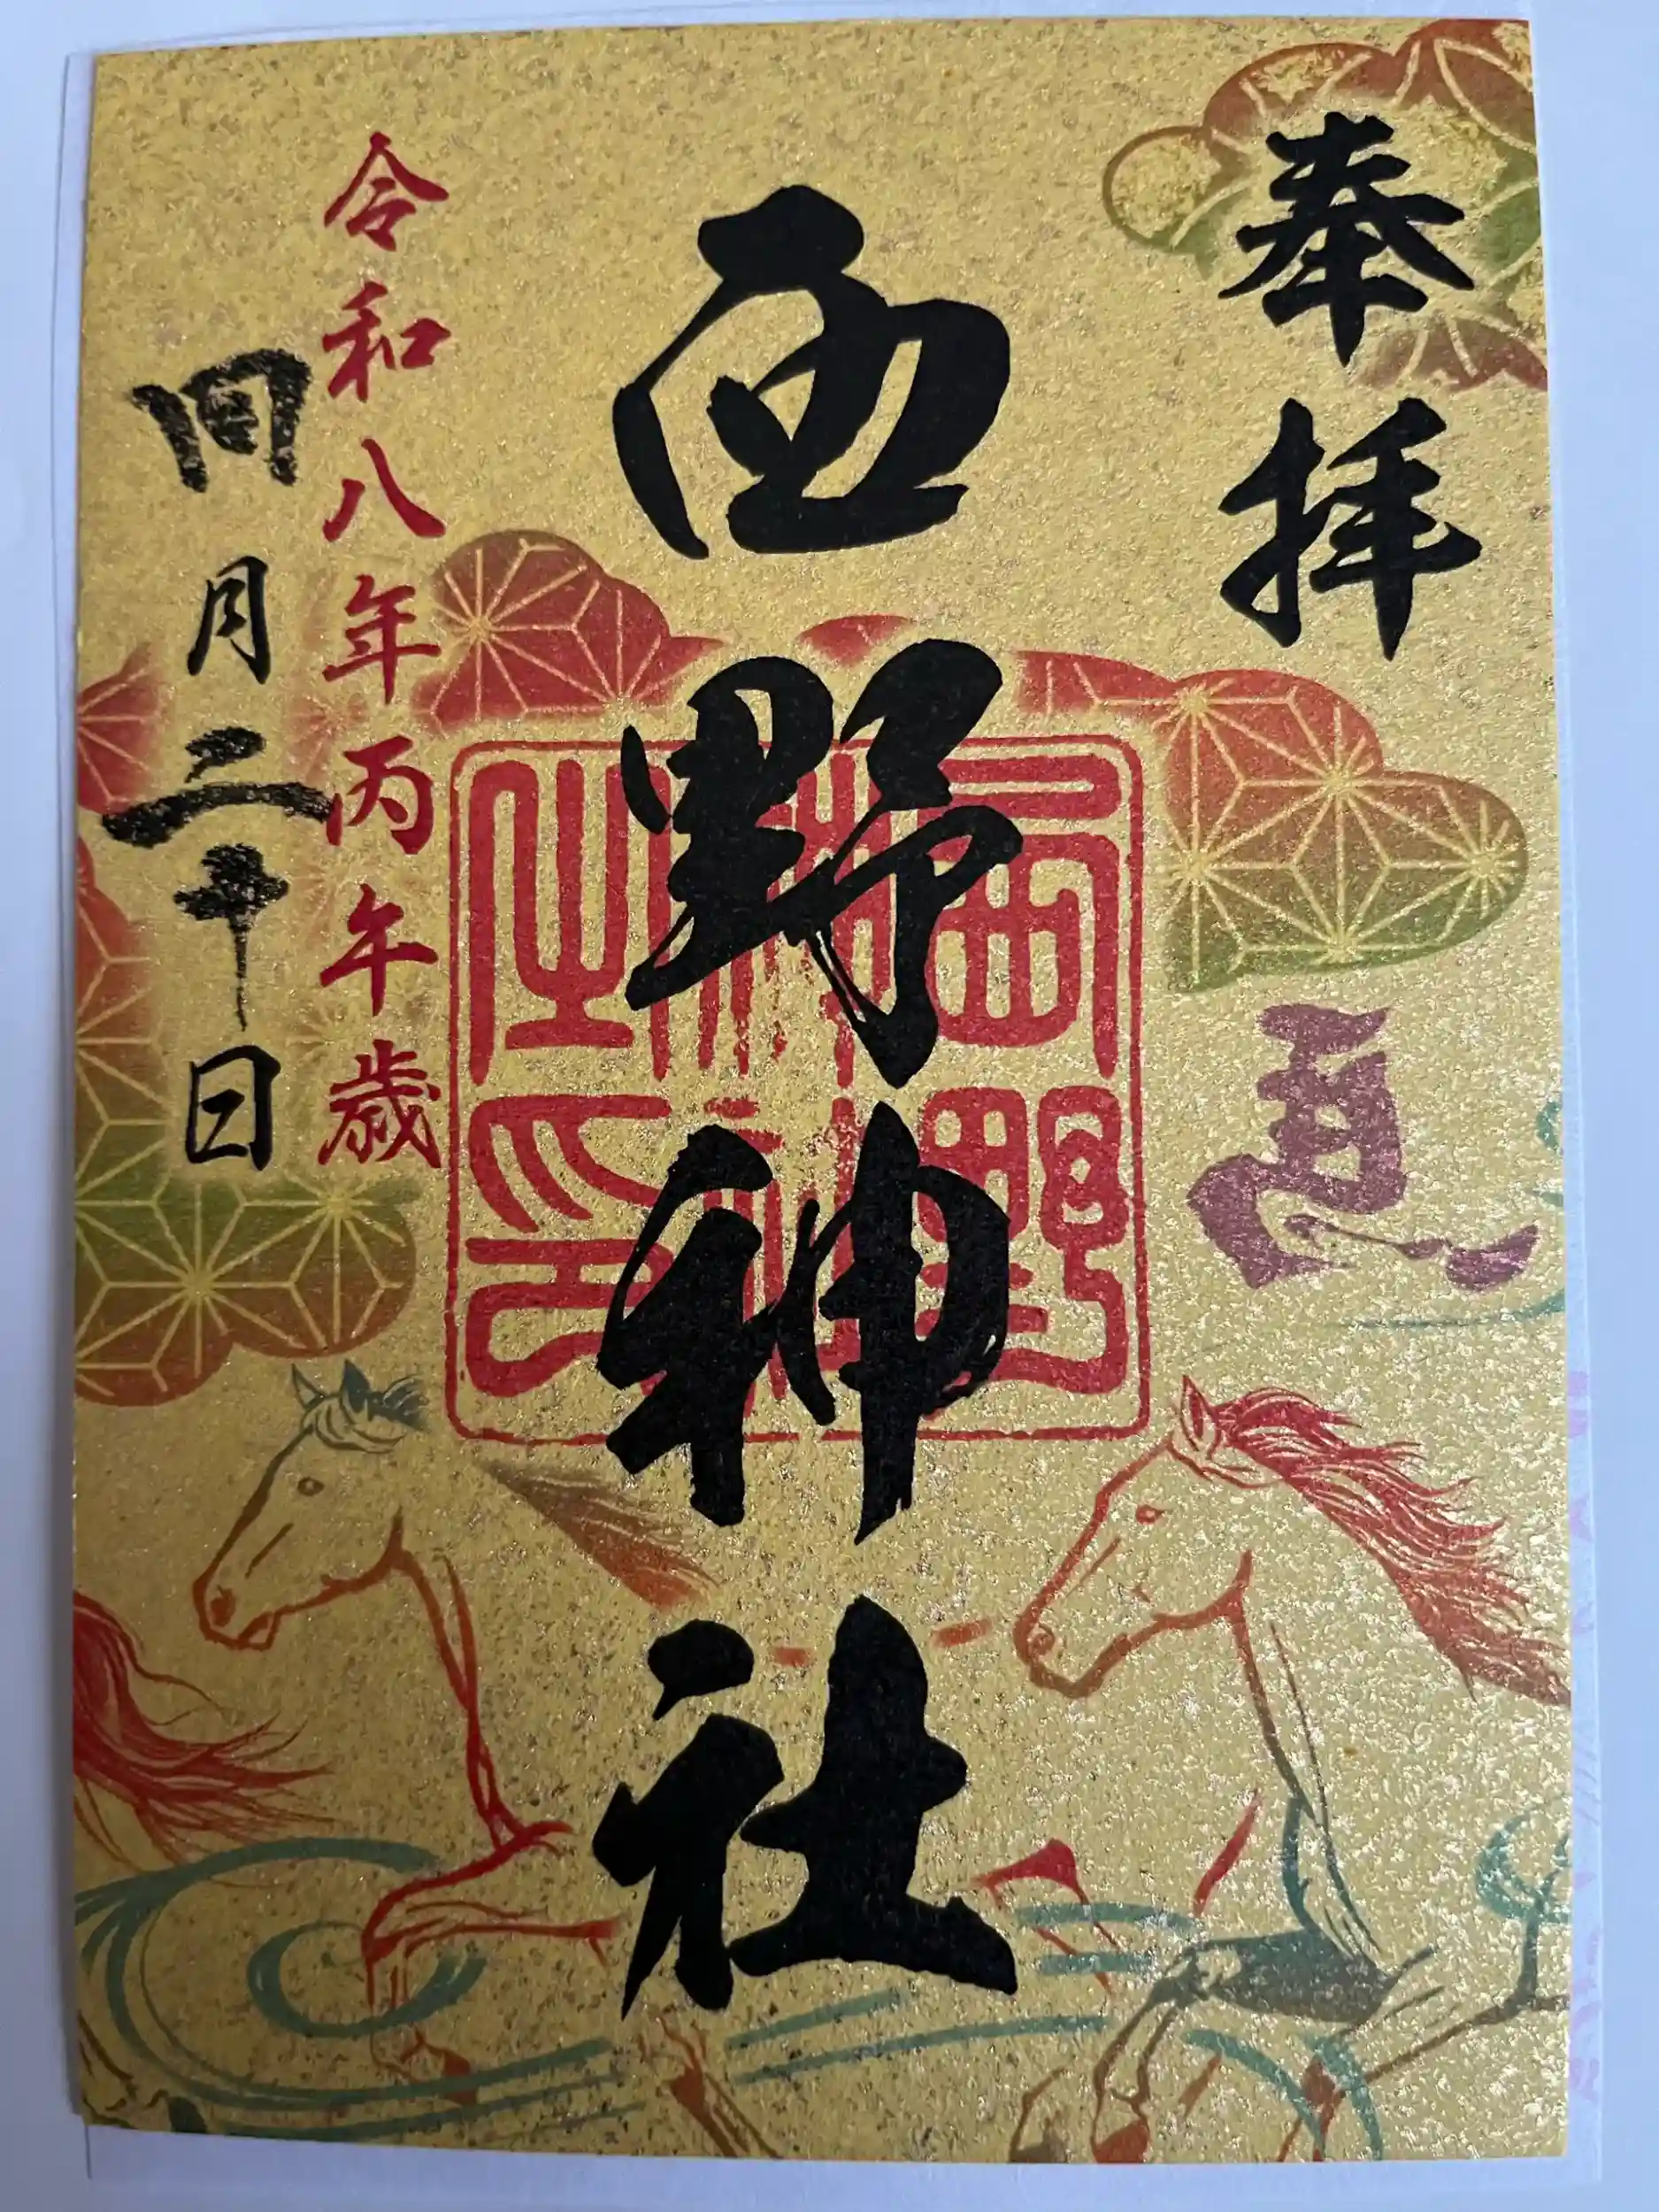 奉拝
馬
西野神社
西野神社之印
令和八年丙午歳
四月二十日